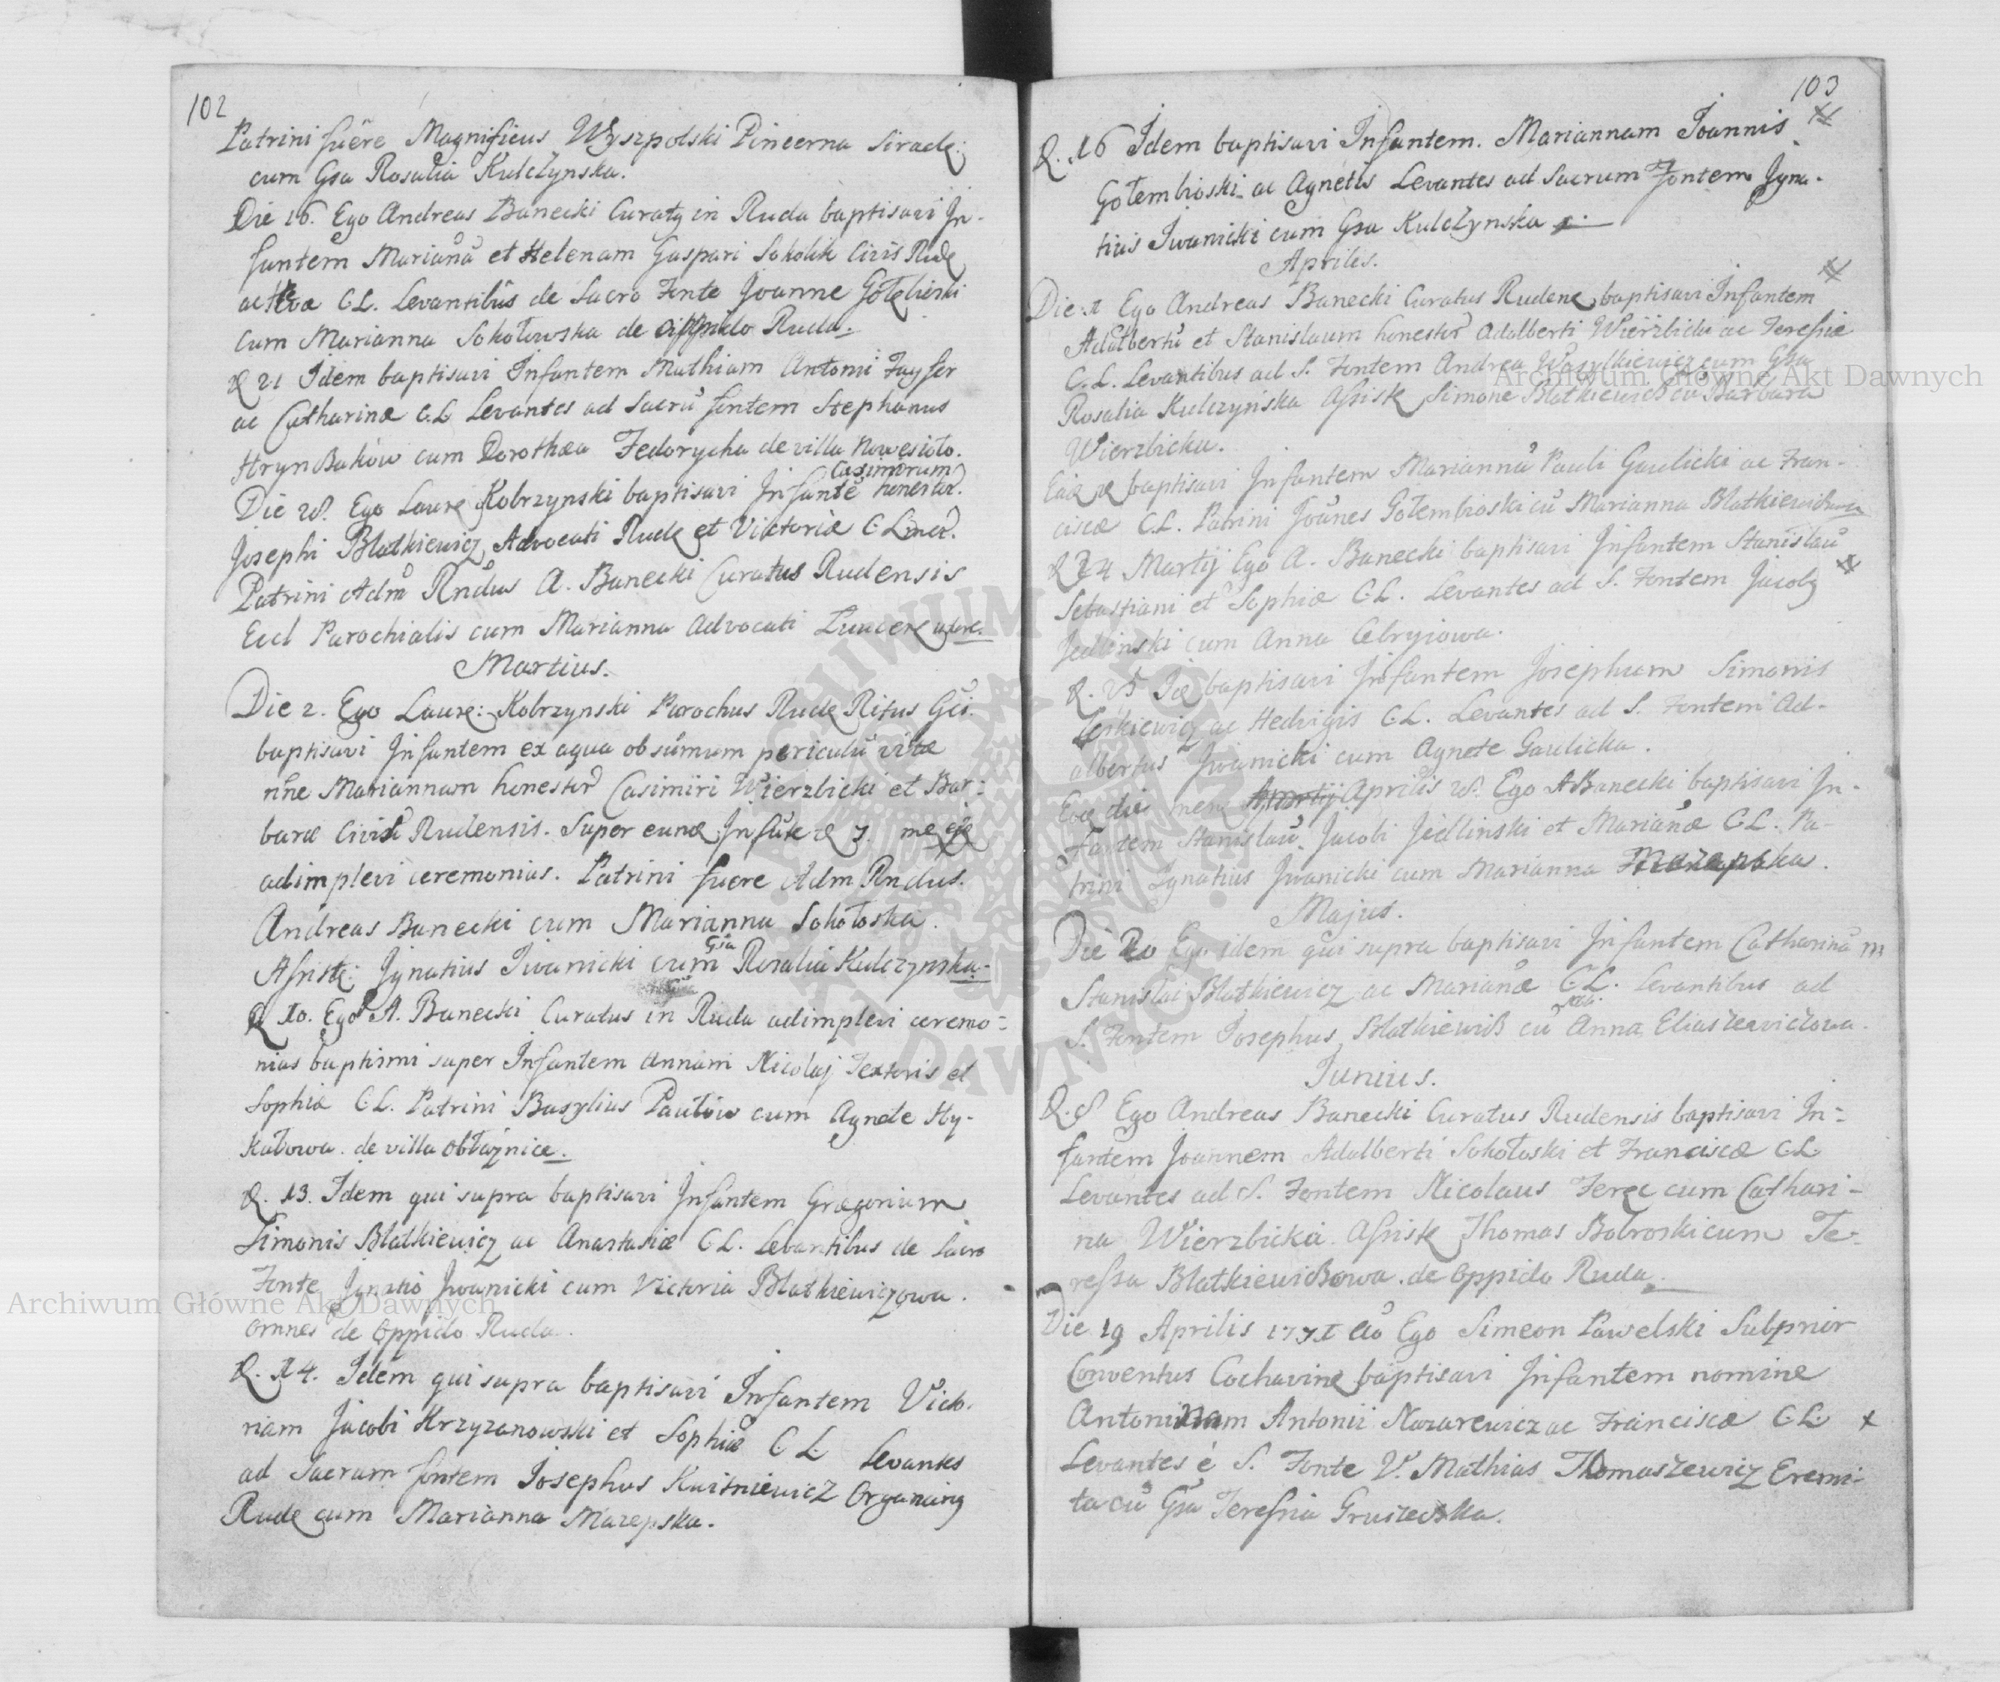 102
Patrini fuere Magnificus Wyszpolski Pincerna Sirade:
cum Gsa Rosalia Kulczynska.
Die 16. Ego Andreas Banecki Curatg in Ruda baptisavi In-
fantem Marianã et Helenam Gaspari Sokolik Civis Rudę
ac Evæ C.L. Levantibus de Sacro Fonte Joanne Gołębioski
cum Marianna Sokołowska de oppido Ruda.
D 21 Idem baptisavi Infantem Mathiam Antonii Fayfer
ac Catharinæ C.L Levantes ad Sacrũ fontem Stephanus
Hryn Baków cum Dorothea Fedorycha de villa Nowesioło.
Casimirum
Die 28. Ego Laure Kobrzynski baptisavi Infantẽ honestor.
Josephi Blatkiewicz Advocati Rudę et Victoriæ C L
Patrini Adm Rndus A. Banecki Curatus Rudensis
Eccl Parochialis cum Marianna Advocati
Martius.
Die 2. Ego Laure: Kobrzynski Parochus Rudę Ritus
baptisavi Infantem ex aqua ob sũmum periculũ vitæ
nñe Mariannam honestor Casimiri Wierzbicki et Bar-
baræ Rudensis. Super Infãte
adimplevi ceremonias. Patrini fuere Adm Rndus.
Andreas Banecki cum Marianna Sokołoska.
Gsa
Assistę: Ignatius Iwanicki cum Rosalia Kulczynska-
D 10. Ego A. Banecki Curatus in Ruda adimplevi ceremo-
nias baptismi super Infantem Annam Nicolaj Textoris et
Sophiæ C L. Patrini Basylius Pautów cum Agnete Hy-
katowa. de villa Obłaznice.
D. 13. Idem qui supra baptisavi Infantem Gregorium
Simonis Blatkiewicz ac Anastasiæ C L. Levantibus de Sacro
Fonte Ignatio Iwanicki cum Victoria Blatkiewiczowa.
omnes de Oppido Ruda.
D. 14. Idem qui supra baptisavi Infantem Victo-
riam Jacobi Krzyzanowski et Sophiæ C. L. Levantes
ad Sacrum fontem Josephus Kuisniewicz Organarig
Rudę cum Marianna Mazepska.
103
D. 16 Idem baptisavi Infantem. Mariannam Joannis
Gołembioski ac Agnetis Levantes ad Sacrum Fontem Igna-
tius Iwanicki cum Gsa Kulczynska
Aprilis.
Die 1 Ego Andreas Banecki Curatus Rudenę baptisavi Infantem
Adalbertũ et Stanislaum honestor Adalberti Wierzbicki ac Teressiæ
C. L. Levantibus ad S. Fontem Andrea Wasylkiewicz cum Gsa
Rosalia Kulczyńska Assistę Simone Blatkiewicz cũ Barbara
Wierzbicka.
baptisavi Infantem Mariannã Pauli Gaulicki ac Fran-
ciscæ C L. Patrini Joãnes Gołembioski cũ Marianna
D 24 Martij Ego A. Banecki baptisavi Infantem Stanislaũ
Sebastiani et Sophiæ C.L. Levantes ad S. Fontem Jacobg
Jedlinski cum Anna
D. 25 baptisavi Infantem Josephum Simonis
ac Hedvigis C L. Levantes ad S. Fontem Ad-
albertus Iwanicki cum Agnete Gaulicka.
die Aprilis 28. Ego A Banecki baptisavi In-
fantem Stanislaũ Jacobi Jedlinski et Marianæ C L. Pa-
trini Ignatius Iwanicki cum Marianna Mazepska.
Majus.
Die 20 Ego idem qui supra baptisavi Infantem Catharinã m
Stanislai Blatkiewicz ac Marianæ C.L. Levantibus ad
S. Fontem Josephus Blatkiewicz cũ Anna Eliaszewiczowa.
Junius.
D. 8 Ego Andreas Banecki Curatus Rudensis baptisavi In-
fantem Joannem Adalberti Sokołoski et Franciscæ C L.
Levantes ad S. Fontem Nicolaus Ferec cum Cathari-
na Wierzbicka. Assistę Thomas Bobroski cum Te-
ressa Blatkiewiczowa. de Oppido Ruda.
Die 19 Aprilis 1771 Ego Simeon Pawelski Subprior
Conventus Cochavinę baptisavi Infantem nomine
Antoninam Antonii Nazarewicz ac Franciscæ C.L.
Levantes é S. Fonte V. Mathias Thomaszewicz Eremi-
ta cũ Gsa Teressia Gruszewska.
Archiwum Główne Akt Dawnych
Archiwum Główne Akt Dawnych
ARCHIWUM GŁÓWNE AKT DAWNYCH